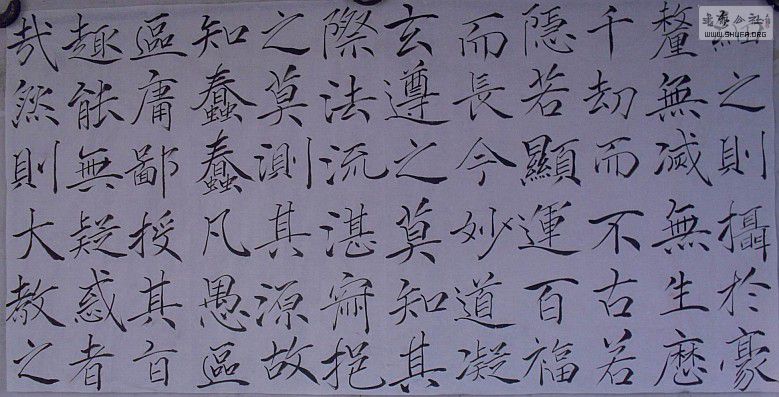 細之則攝於豪
釐無滅無生歷
千劫而不古若
隱若顯運百福
而長今妙道凝
玄遵之莫知其
際法流湛寂挹
之莫測其源故
知蠢蠢凡愚區
區庸鄙投其旨
趣能無疑惑者
哉然則大教之
WWW.SHUFA.ORG